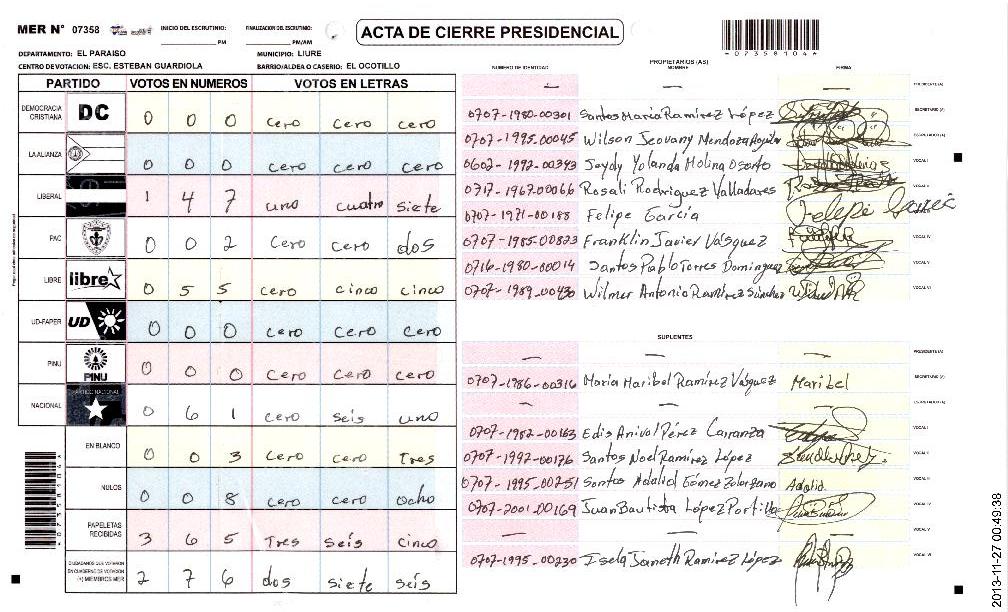 MER N° 07358 INICIO DEL ESCRUTINIO: FINALIZACION DEL ESCRUTINIO: ACTA DE CIERRE PRESIDENCIAL
PM PM/AM *07358104*
DEPARTAMENTO: EL PARAISO MUNICIPIO: LIURE
CENTRO DE VOTACION: ESC. ESTEBAN GUARDIOLA BARRIO/ALDEA O CASERIO: EL OCOTILLO
PARTIDO VOTOS EN NUMEROS VOTOS EN LETRAS
DEMOCRACIA CRISTIANA DC 0 0 0 cero cero cero
LA ALIANZA 0 0 0 cero cero cero
LIBERAL 1 4 7 uno cuatro siete
PAC 0 0 2 cero cero dos
LIBRE libre 0 5 5 cero cinco cinco
UD-FAPER UD 0 0 0 cero cero cero
PINU PINU 0 0 0 cero cero cero
NACIONAL 0 6 1 cero seis uno
EN BLANCO 0 0 3 cero cero Tres
NULOS 0 0 8 cero cero ocho
PAPELETAS RECIBIDAS 3 6 5 Tres seis cinco
CIUDADANOS QUE VOTARON EN CUADERNO DE VOTACION (+) MIEMBROS MER 2 7 6 dos siete seis
PROPIETARIOS (AS)
NUMERO DE IDENTIDAD NOMBRE FIRMA
— — — PRESIDENTE (A)
0707-1980-00301 Santos Maria Ramirez López SECRETARIO (A)
0707-1995-00045 Wilson Jeovany Mendoza Aguilar ESCRUTADOR (A)
0602-1992-00343 Jeydy Yolanda Molina Osorto VOCAL I
0717-1967-00066 Rosali Rodriguez Valladares VOCAL II
0707-1971-00188 Felipe García Felipe Garcia VOCAL III
0707-1985-00823 Franklin Javier Vásquez VOCAL IV
0716-1980-00014 Santos Pablo Torres Dominguez VOCAL V
0707-1989-00430 Wilmer Antonio Ramírez Sánchez VOCAL VI
SUPLENTES
— — — PRESIDENTE (A)
0707-1986-00316 Maria Maribel Ramírez Vásquez Maribel SECRETARIO (A)
— — — ESCRUTADOR (A)
0707-1982-00163 Edis Anival Pérez Carranza VOCAL I
0707-1992-00176 Santos Noel Ramírez López VOCAL II
0707-1995-00251 Santos Adalid Gómez Adalid VOCAL III
0707-2001-00169 Juan Bautista López Portillo VOCAL IV
— — VOCAL V
0707-1995-00230 Isela Janeth Ramirez López VOCAL VI
*07358104*
2013-11-27 00:49:38